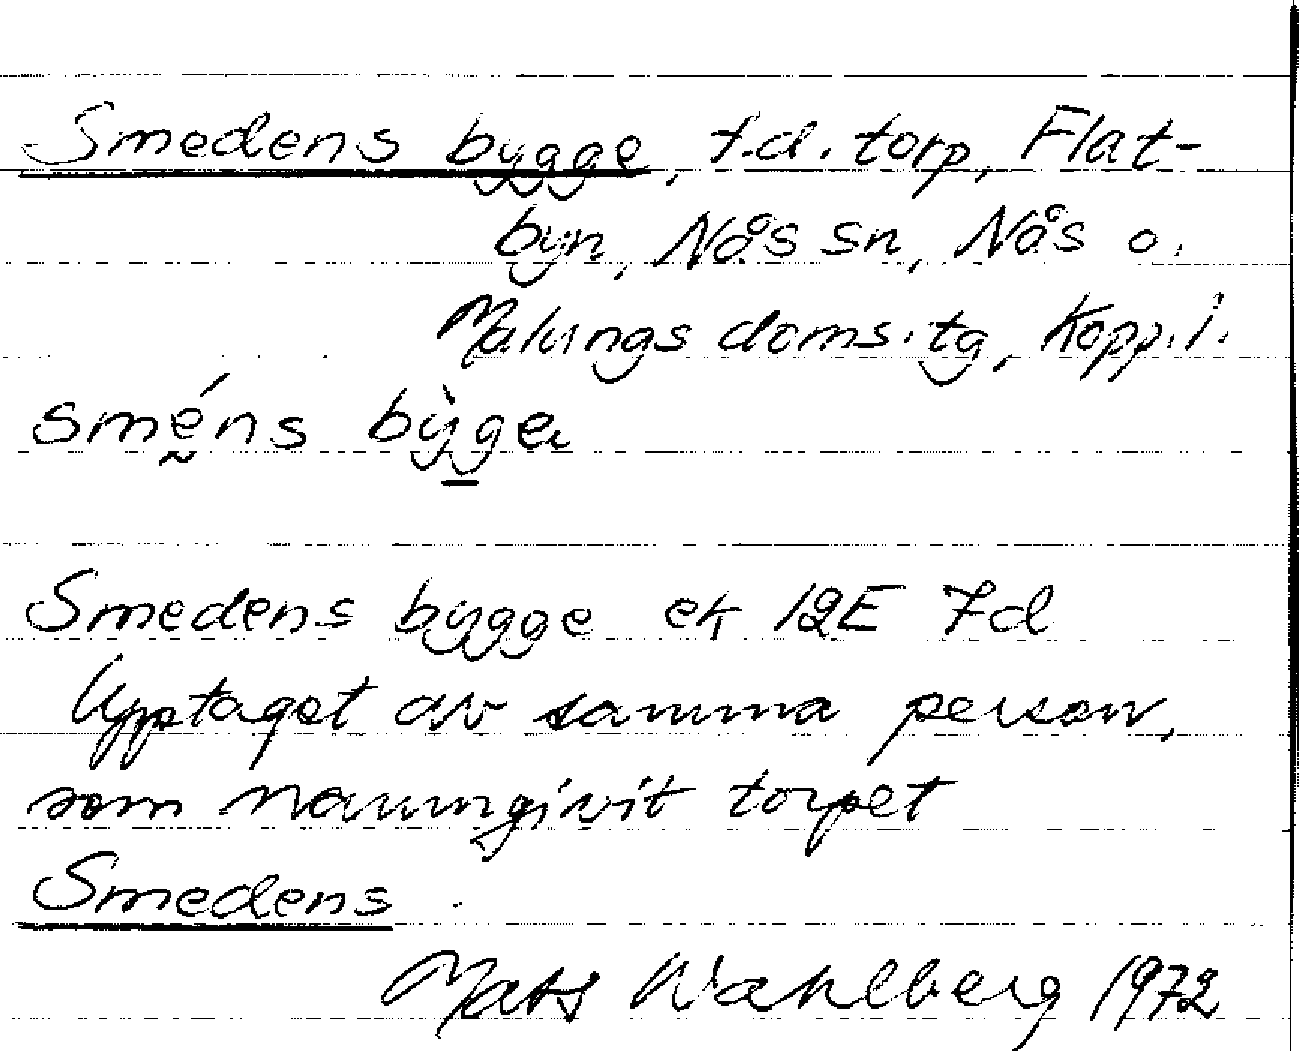 Smedens bygge, f.d. torp, Flat-
byn, Nås sn, Nås o.
Malungs doms.tg, Kopp.l.
smḛ́ns bỳg̱ea
Smedens bygge ek 12E 7d
Upptaget av samma person,
som namngivit torpet
Smedens
Mats Wahlberg 1972